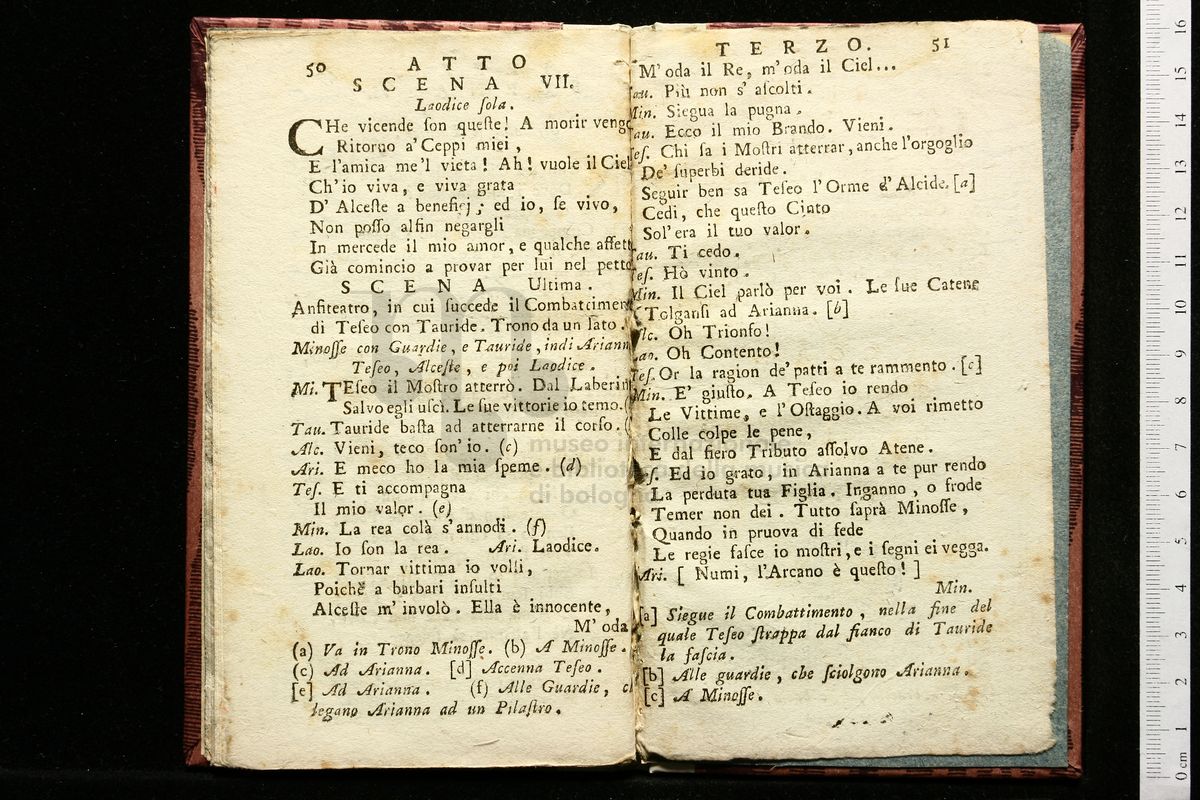 50 ATTO
SCENA VII.
Laodice ſola.
CHe vicende ſon queſte! A morir vengo
Ritorno a' Ceppi miei,
E l'amica me'l vieta! Ah! vuole il Ciel
Ch'io viva, e viva grata
D' Alceſte a benefiçj; ed io, ſe vivo,
Non poſſo alfin negargli
In mercede il mio amor, e qualche affett
Già comincio a provar per lui nel petto
SCENA Ultima.
Anfiteatro, in cui ſuccede il Combattimen
di Teſeo con Tauride. Trono da un lato.
Minoſſe con Guardie, e Tauride, indi Ariann
Teſeo, Alceſte, e poi Laodice.
Mi. TEſeo il Moſtro atterrò. Dal Laberin
Salvo egli uſcì. Le ſue vittorie io temo. (
Tau. Tauride baſta ad atterrarne il corſo. (
Alc. Vieni, teco ſon' io. (c)
Ari. E meco ho la mia ſpeme. (d)
Teſ. E ti accompagna
Il mio valor. (e)
Min. La rea colà s'annodi. (f)
Lao. Io ſon la rea. Ari. Laodice.
Lao. Tornar vittima io volli,
Poichè a barbari inſulti
Alceſte m' involò. Ella è innocente,
M' oda
(a) Va in Trono Minoſſe. (b) A Minoſſe.
(c) Ad Arianna. [d] Accenna Teſeo.
[e] Ad Arianna. (f) Alle Guardie, c
legano Arianna ad un Pilaſtro.
TERZO. 51
M' oda il Re, m' oda il Ciel...
au. Più non s' aſcolti.
Min. Siegua la pugna.
au. Ecco il mio Brando. Vieni.
eſ. Chi ſa i Moſtri atterrar, anche l'orgoglio
De' ſuperbi deride.
Seguir ben sa Teſeo l'Orme d'Alcide. [a]
Cedi, che queſto Cinto
Sol' era il tuo valor.
au. Ti cedo.
eſ. Hò vinto.
Min. Il Ciel parlò per voi. Le ſue Catene
Tolganſi ad Arianna. [b]
lc. Oh Trionfo!
ao. Oh Contento!
eſ. Or la ragion de' patti a te rammento. [c]
Min. E' giuſto. A Teſeo io rendo
Le Vittime, e l'Oſtaggio. A voi rimetto
Colle colpe le pene,
E dal fiero Tributo aſſolvo Atene.
eſ. Ed io grato, in Arianna a te pur rendo
La perduta tua Figlia. Inganno, o frode
Temer non dei. Tutto ſaprà Minoſſe,
Quando in pruova di fede
Le regie faſce io moſtri, e i ſegni ei vegga.
Ari. [ Numi, l'Arcano è queſto! ]
Min.
[a] Siegue il Combattimento, nella fine del
quale Teſeo ſtrappa dal fianco di Tauride
la faſcia.
[b] Alle guardie, che ſciolgono Arianna.
[c] A Minoſſe.
museo internazionale
e biblioteca della musica
di bologna
0 cm 1 2 3 4 5 6 7 8 9 10 11 12 13 14 15 16